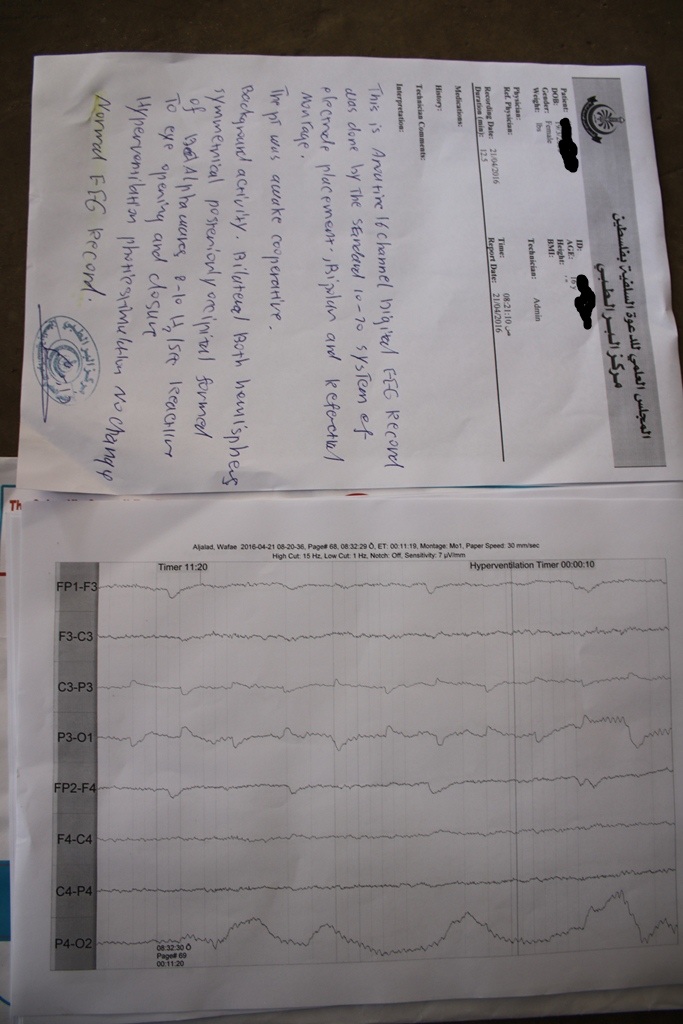 المجلس العلمي للدعوة السلفية بفلسطين
مركز البر الطبي
Patient: ID:
DOB: AGE:
Gender: Female Height:
Weight: lbs BMI:
Physician: Technician: Admin
Ref. Physician:
Recording Date: 21/04/2016 Time: 08:21:10 ص
Duration (min): 12.5 Report Date: 21/04/2016
Medications:
History:
Technician Comments:
Interpretation:
This is Aroutine 16 channel Digital EEG Record
was done by the standard 10-20 system of
electrode placement, Bipolar and Referential
Montage.
The pt was awake cooperative.
Background activity. Bilateral Both hemisphers
symmetrical posteriorly occipital formed
of Alpha waves 8-10 Hz/sec reactive
To eye opening and closure
Hyperventilation photicstimulation no change
Normal EEG Record.
مركز البر الطبي
Aljalad, Wafae 2016-04-21 08-20-36, Page# 68, 08:32:29 Õ, ET: 00:11:19, Montage: Mo1, Paper Speed: 30 mm/sec
High Cut: 15 Hz, Low Cut: 1 Hz, Notch: Off, Sensitivity: 7 µV/mm
Timer 11:20 Hyperventilation Timer 00:00:10
FP1-F3
F3-C3
C3-P3
P3-O1
FP2-F4
F4-C4
C4-P4
P4-O2
08:32:30 Õ
Page# 69
00:11:20